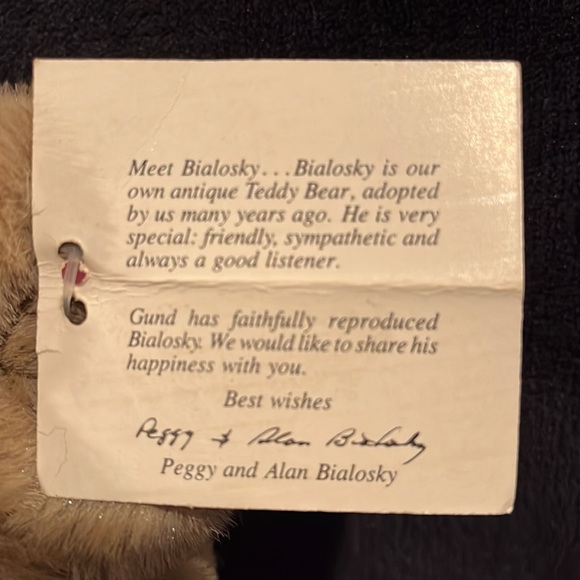 Meet Bialosky...Bialosky is our
own antique Teddy Bear, adopted
by us many years ago. He is very
special: friendly, sympathetic and
always a good listener.
Gund has faithfully reproduced
Bialosky. We would like to share his
happiness with you.
Best wishes
Peggy & Alan Bialosky
Peggy and Alan Bialosky